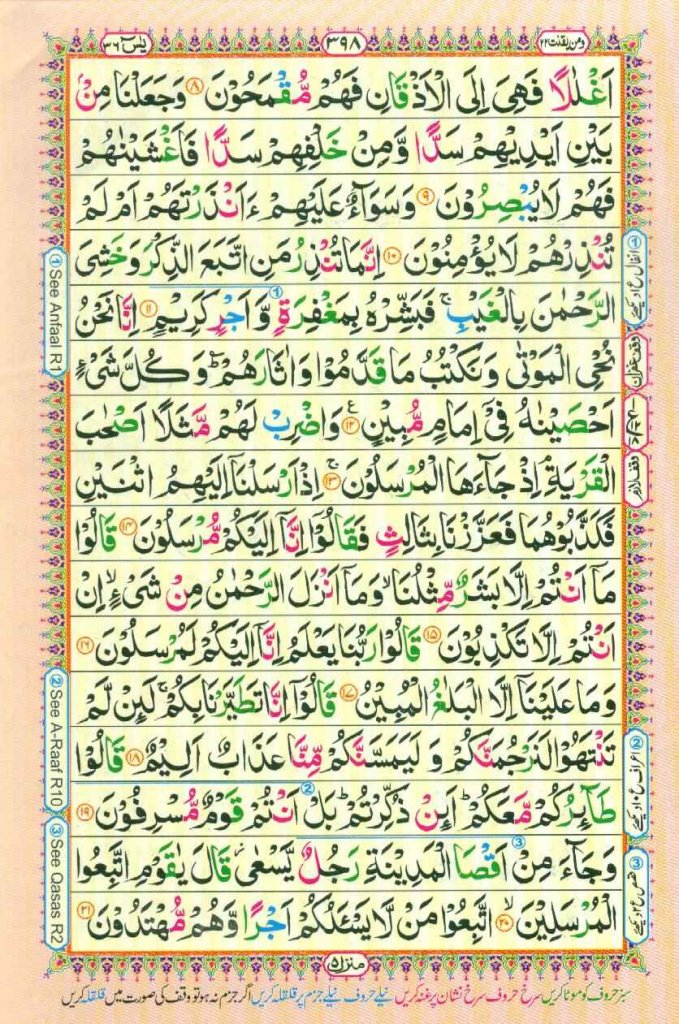 ومن یقنت ۲۲
۳۹۸
یٰسٓ ۳۶
اَغْلٰلًا فَهِیَ اِلَی الْاَذْقَانِ فَهُمْ مُّقْمَحُوْنَ ۸ وَجَعَلْنَا مِنْۢ
بَیْنِ اَیْدِیْهِمْ سَدًّا وَّمِنْ خَلْفِهِمْ سَدًّا فَاَغْشَیْنٰهُمْ
فَهُمْ لَا یُبْصِرُوْنَ ۹ وَسَوَآءٌ عَلَیْهِمْ ءَاَنْذَرْتَهُمْ اَمْ لَمْ
تُنْذِرْهُمْ لَا یُؤْمِنُوْنَ ۱۰ اِنَّمَا تُنْذِرُ مَنِ اتَّبَعَ الذِّكْرَ وَخَشِیَ
الرَّحْمٰنَ بِالْغَیْبِ ۚ فَبَشِّرْهُ بِمَغْفِرَةٍ وَّاَجْرٍ كَرِیْمٍ ۱۱ اِنَّا نَحْنُ
نُحْیِ الْمَوْتٰی وَنَكْتُبُ مَا قَدَّمُوْا وَاٰثَارَهُمْ ؕ وَكُلَّ شَیْءٍ
اَحْصَیْنٰهُ فِیْۤ اِمَامٍ مُّبِیْنٍ ۱۲ ع وَاضْرِبْ لَهُمْ مَّثَلًا اَصْحٰبَ
الْقَرْیَةِ ۘ اِذْ جَآءَهَا الْمُرْسَلُوْنَ ۱۳ ۚ اِذْ اَرْسَلْنَاۤ اِلَیْهِمُ اثْنَیْنِ
فَكَذَّبُوْهُمَا فَعَزَّزْنَا بِثَالِثٍ فَقَالُوْۤا اِنَّاۤ اِلَیْكُمْ مُّرْسَلُوْنَ ۱۴ قَالُوْا
مَاۤ اَنْتُمْ اِلَّا بَشَرٌ مِّثْلُنَا ۙ وَمَاۤ اَنْزَلَ الرَّحْمٰنُ مِنْ شَیْءٍ ۙ اِنْ
اَنْتُمْ اِلَّا تَكْذِبُوْنَ ۱۵ قَالُوْا رَبُّنَا یَعْلَمُ اِنَّاۤ اِلَیْكُمْ لَمُرْسَلُوْنَ ۱۶
وَمَا عَلَیْنَاۤ اِلَّا الْبَلٰغُ الْمُبِیْنُ ۱۷ قَالُوْۤا اِنَّا تَطَیَّرْنَا بِكُمْ ۚ لَىِٕنْ لَّمْ
تَنْتَهُوْا لَنَرْجُمَنَّكُمْ وَلَیَمَسَّنَّكُمْ مِّنَّا عَذَابٌ اَلِیْمٌ ۱۸ قَالُوْا
طَآىِٕرُكُمْ مَّعَكُمْ ؕ اَىِٕنْ ذُكِّرْتُمْ ؕ بَلْ اَنْتُمْ قَوْمٌ مُّسْرِفُوْنَ ۱۹
وَجَآءَ مِنْ اَقْصَا الْمَدِیْنَةِ رَجُلٌ یَّسْعٰی قَالَ یٰقَوْمِ اتَّبِعُوا
الْمُرْسَلِیْنَ ۲۰ ۙ اتَّبِعُوْا مَنْ لَّا یَسْـَٔلُكُمْ اَجْرًا وَّهُمْ مُّهْتَدُوْنَ ۲۱
منزل ۵
سبز حروف کو موٹا کریں سرخ حروف سرخ نشان پر غنہ کریں نیلے حروف نیلے جزم پر قلقلہ کریں اگر جزم نہ ہو تو وقف کی صورت میں قلقلہ کریں
① See Anfaal R1
② See A-Raaf R10
③ See Qasas R2
وقف غفران
وقف لازم